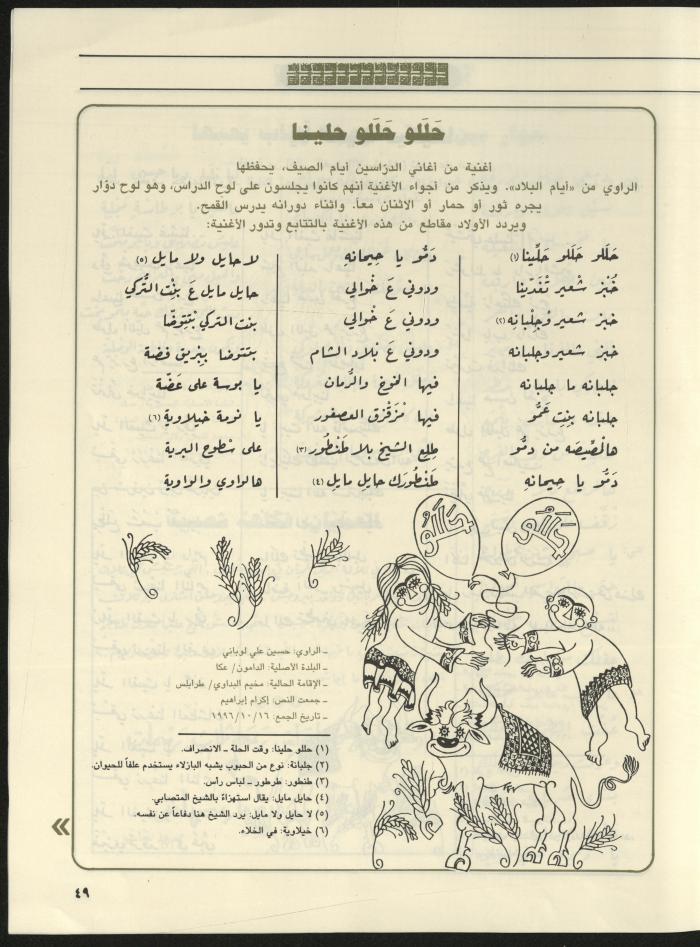 حَلَلو حَلَلو حلينا
أغنية من أغاني الدرّاسين أيام الصيف، يحفظها
الراوي من «أيام البلاد». ويذكر من أجواء الأغنية أنهم كانوا يجلسون على لوح الدراس، وهو لوح دوّار
يجره ثور أو حمار أو الاثنان معاً. واثناء دورانه يدرس القمح.
ويردد الأولاد مقاطع من هذه الأغنية بالتتابع وتدور الأغنية:
حَلَلو حَلَلو حَلِّينا (١)
خُبْز شعير تْغَدّينا
خبز شعير وجْلبانِه (٢)
خبز شعير وجلبانه
جلبانه ما جلبانه
جلبانه بِنِت عَمُّو
هالْصِّيصَه من دمُّو
دَمُّو يا جِيمانِهِ
دَمُّو يا جِيمانِهِ
ودوني عَ خْوالي
ودوني عَ خْوالي
ودوني عَ بْلاد الشام
فيها الخوخ والرُّمان
فيها مْزَقْزِق العصفور
طِلِع الشيخ بلا طَنْطُور (٣)
طَنْطُورك حايل مايل (٤)
لا حايل ولا مايل (٥)
حايل مايل عَ بِنْت التُّركي
بنت التركي بْتِتْوضّا
بتتوضا بِبْريق فضة
يا بوسة على عَضّة
يا نومة خيلاوية (٦)
على سْطوح البرية
هالواوي والواوية
حَلَلو
حَلَلو
ـ الراوي: حسين علي لوباني
ـ البلدة الأصلية: الدامون/ عكا
ـ الإقامة الحالية: مخيم البداوي/ طرابلس
ـ جمعت النص: إكرام إبراهيم
ـ تاريخ الجمع: ١٩٩٦/١٠/١٦
(١) حللو حلينا: وقت الحلة ـ الانصراف.
(٢) جلبانة: نوع من الحبوب يشبه البازلاء يستخدم علفاً للحيوان.
(٣) طنطور: طرطور ـ لباس رأس.
(٤) حايل مايل: يقال استهزاءً بالشيخ المتصابي.
(٥) لا حايل ولا مايل: يرد الشيخ هنا دفاعاً عن نفسه.
(٦) خيلاوية: في الخلاء.
»
٤٩